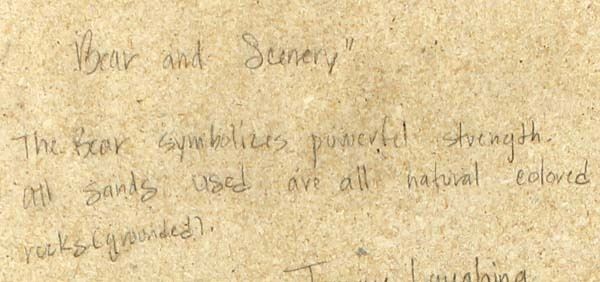 "Bear and Scenery"
The Bear symbolizes powerful strength.
All sands used are all natural colored
rocks (grounded).
Laughing